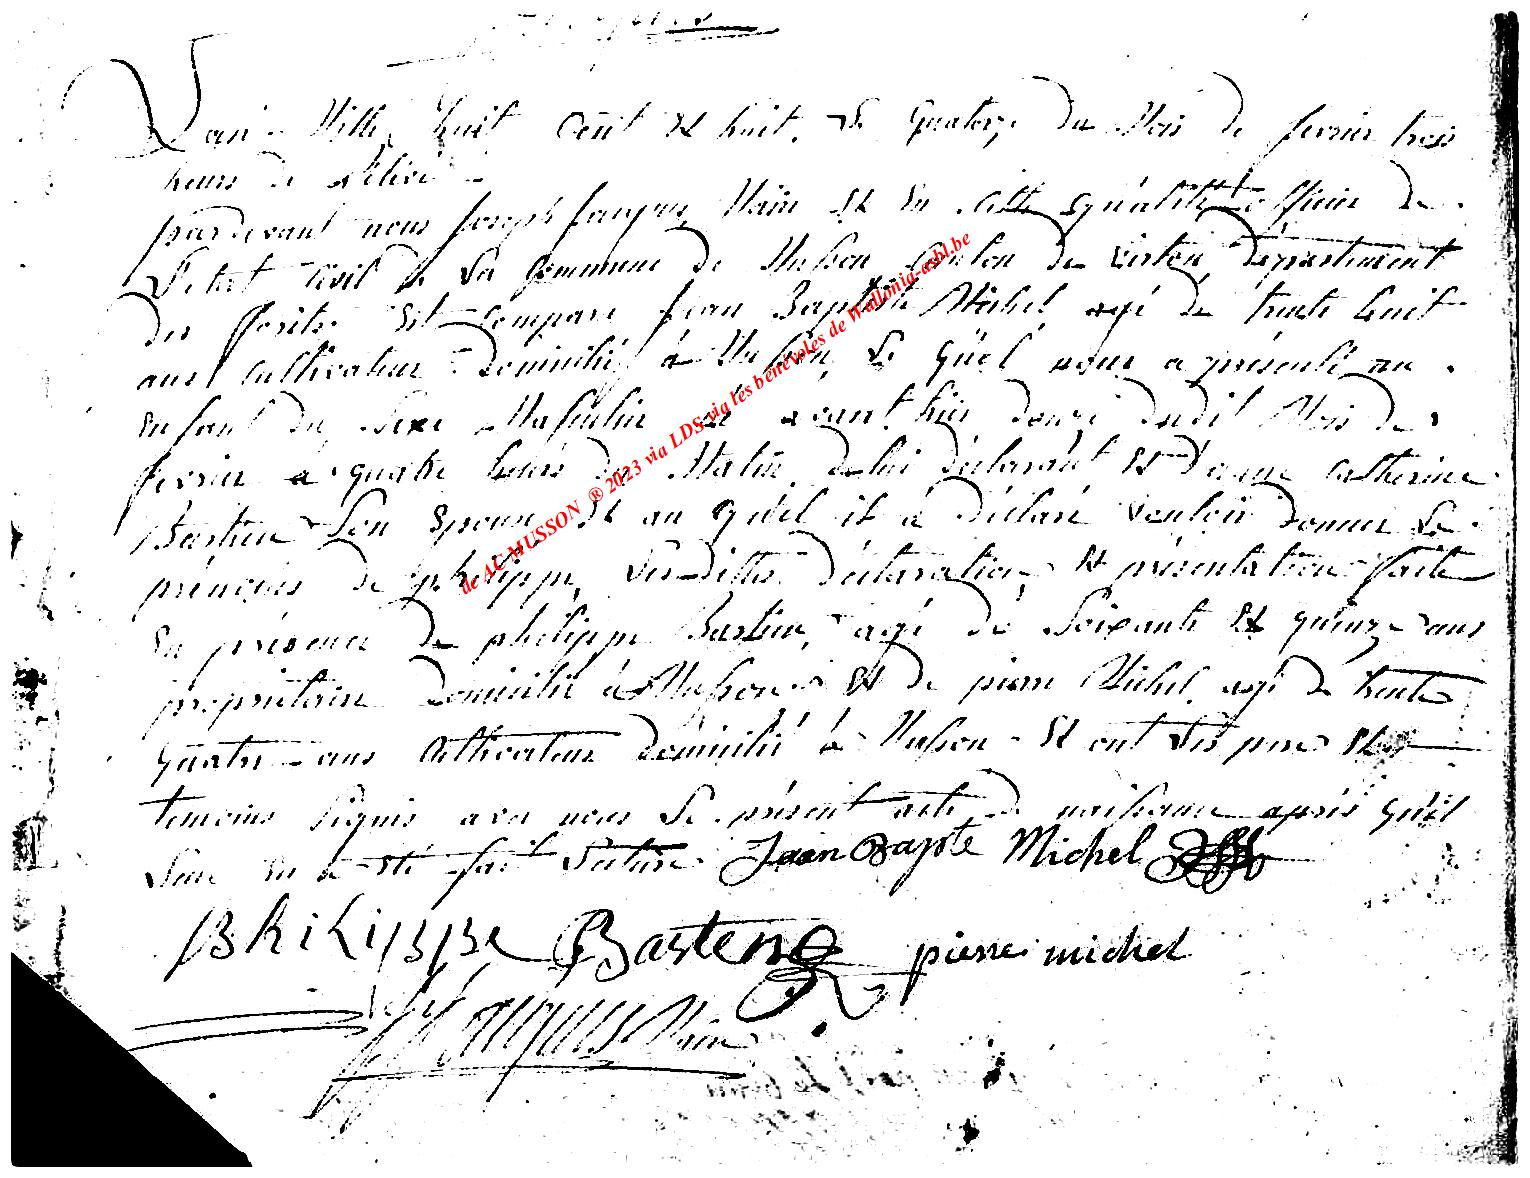 L'an Mille huit Cent et huit, le quatorze du Mois de fevrier trois
heurs de Relevé
pardevant nous Joseph fouquy Maire et en cette qualité officier de
L'etat Civil de La Commune de Musson Canton de virton, département
des forêts. Est comparu jean Baptiste Michel, agé de trente huit
ans, Cultivateur domicilié à Musson, Le quel nous a présenté un
enfant du sexe Masculin né avant hier douze dudit Mois de
fevrier a quatre heurs du Matin, de lui déclarant et d'anne catherine
Bastien Son Epouse et au quel il a déclaré vouloir donner Le
prénoms de philippe, Lesdittes déclaration et présentation faite
en présence de philippe Bastien, agé de Soixante et quinze ans
propriétaire domicilié à Musson et de pierre Michel agé de trente
quatre ans Cultivateur domicilié à Musson - Et ont Les pere Et
temoins Signés avec nous Le présent acte de naissance après qu'el
Leur en a été fait Lecture. Jean Bapste Michel
Philippe Basteng pierre michel
Maire
de AC MUSSON ® 2023 via LDS via les bénévoles de Wallonia-asbl.be